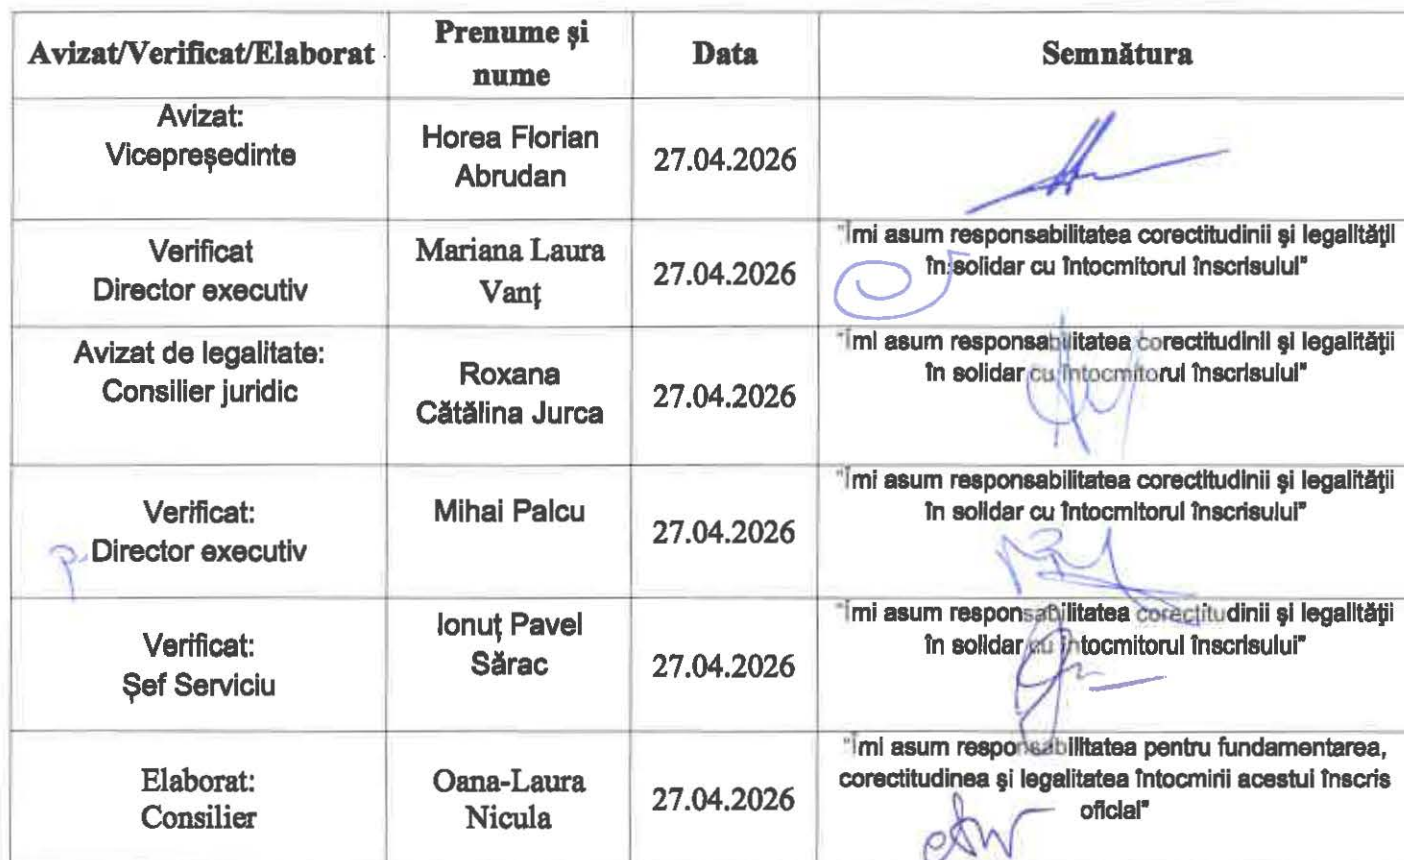 Avizat/Verificat/Elaborat
Prenume și
nume
Data
Semnătura
Avizat:
Vicepreședinte
Horea Florian
Abrudan
27.04.2026
Verificat
Director executiv
Mariana Laura
Vanț
27.04.2026
"Îmi asum responsabilitatea corectitudinii și legalității
în solidar cu întocmitorul înscrisului"
Avizat de legalitate:
Consilier juridic
Roxana
Cătălina Jurca
27.04.2026
"Îmi asum responsabilitatea corectitudinii și legalității
în solidar cu întocmitorul înscrisului"
Verificat:
p. Director executiv
Mihai Palcu
27.04.2026
"Îmi asum responsabilitatea corectitudinii și legalității
în solidar cu întocmitorul înscrisului"
Verificat:
Șef Serviciu
Ionuț Pavel
Sărac
27.04.2026
"Îmi asum responsabilitatea corectitudinii și legalității
în solidar cu întocmitorul înscrisului"
Elaborat:
Consilier
Oana-Laura
Nicula
27.04.2026
"Îmi asum responsabilitatea pentru fundamentarea,
corectitudinea și legalitatea întocmirii acestui înscris
oficial"